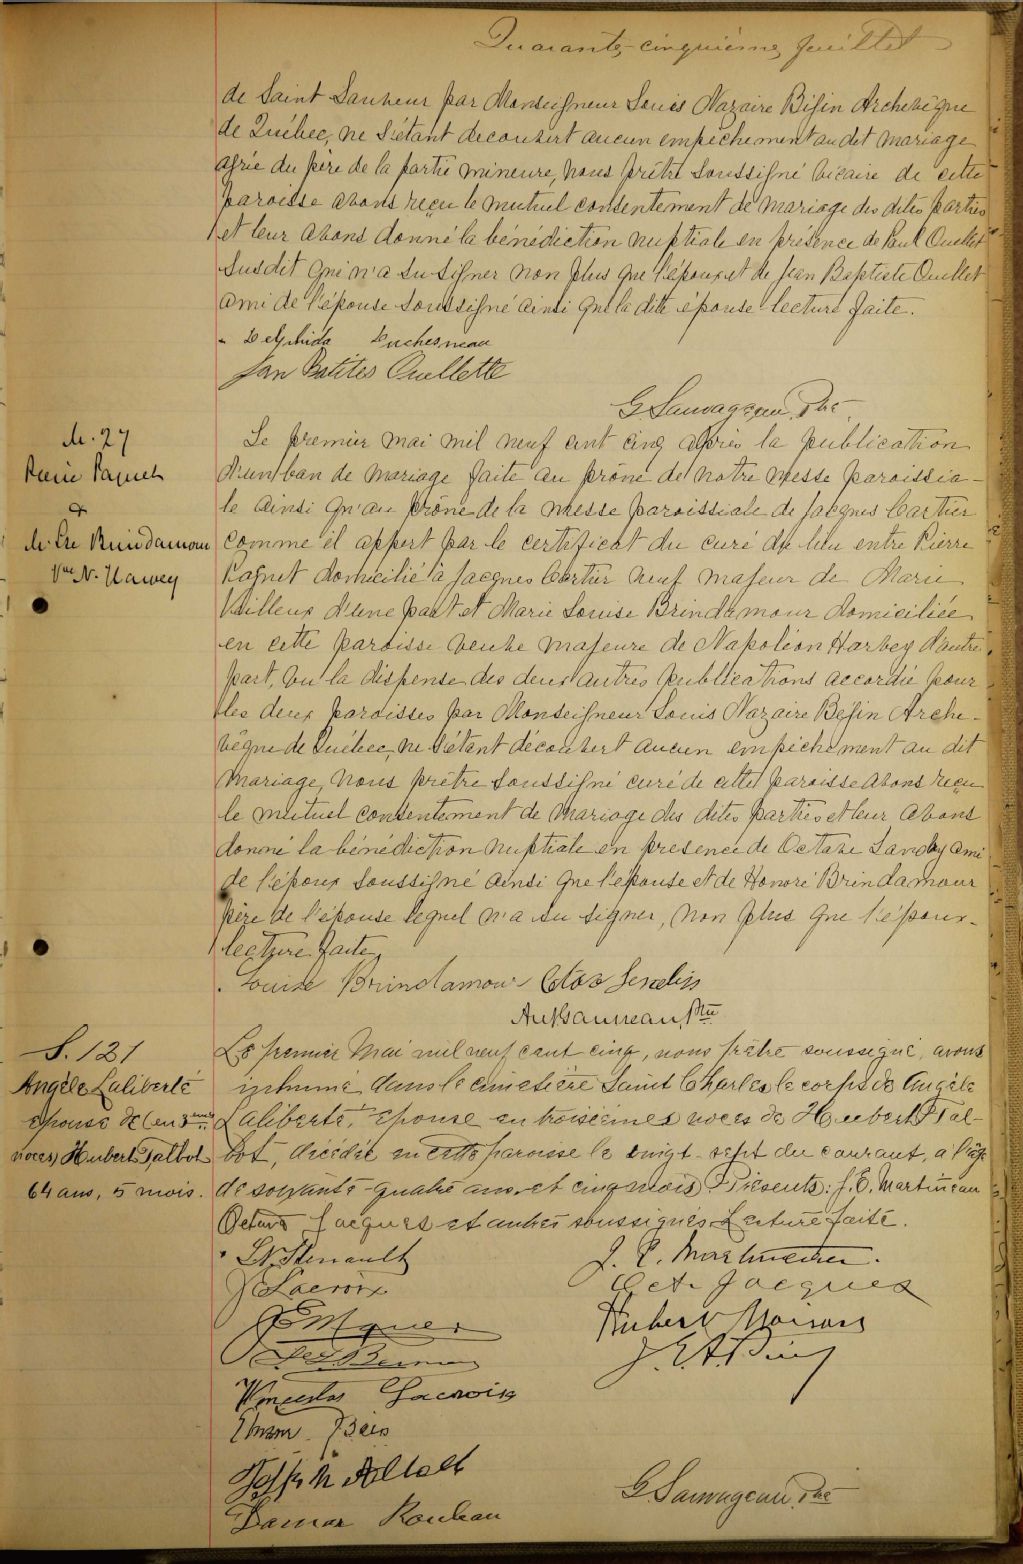 Quarante-cinquième feuillet
de Saint Sauveur par Monseigneur Louis Nazaire Bégin Archevêque
de Québec, ne s'étant decouvert aucun empêchement au dit mariage
agrée du père de la partie mineure, nous prêtre soussigné vicaire de cette
paroisse avons reçu le mutuel consentement de mariage des dites parties
et leur avons donné la bénédiction nuptiale en présence de Paul Ouellet
susdit qui n'a su signer non plus que l'époux et de Jean Baptiste Ouellet
ami de l'épouse soussigné ainsi que la dite épouse lecture faite.
Delphida Duchesneau
Jan Batites Ouellette
G. Sauvageau, Ptre
M. 27
Pierre Paquet
&
M. Lse Brindamour
Vve N. Harvey
Le premier mai mil neuf cent cinq après la publication
d'un ban de mariage faite au prône de notre messe paroissia-
le ainsi qu'au prône de la messe paroissiale de Jacques Cartier
comme il appert par le certificat du curé du lieu entre Pierre
Paquet domicilié à Jacques Cartier veuf majeur de Marie
Vailleux d'une part et Marie Louise Brindamour domiciliée
en cette paroisse veuve majeure de Napoléon Harvey d'autre
part, vu la dispense des deux autres publications accordée pour
les deux paroisses par Monseigneur Louis Nazaire Bégin Arche-
vêque de Québec, ne s'étant découvert aucun empêchement au dit
mariage, nous prêtre soussigné curé de cette paroisse avons reçu
le mutuel consentement de mariage des dites parties et leur avons
donné la bénédiction nuptiale en presence de Octave Landry ami
de l'époux soussigné ainsi que l'épouse et de Honoré Brindamour
père de l'épouse lequel n'a su signer, non plus que l'époux.
lecture faite.
Louise Brindamour
Ptre
S. 121
Angèle Laliberté
épouse de (en 3emes
noces) Hubert Talbot
64 ans, 5 mois.
Le premier Mai mil neuf cent cinq, nous prêtre soussigné, avons
inhumé dans le cimetière Saint Charles le corps de Angèle
Laliberté, épouse en troisièmes noces de Hubert Tal-
bot, décédée en cette paroisse le vingt-sept du courant, a l'âge
de soixante-quatre ans et cinq mois. Présents: J. E. Martineau
Octave Jacques et autres soussignés. Lecture faite.
J. E. Martineau.
J Lacroix
Oct. Jacques
Hubert Moisan
Lacroix
Joseph Talbot
Damas Rouleau
G. Sauvageau, Ptre